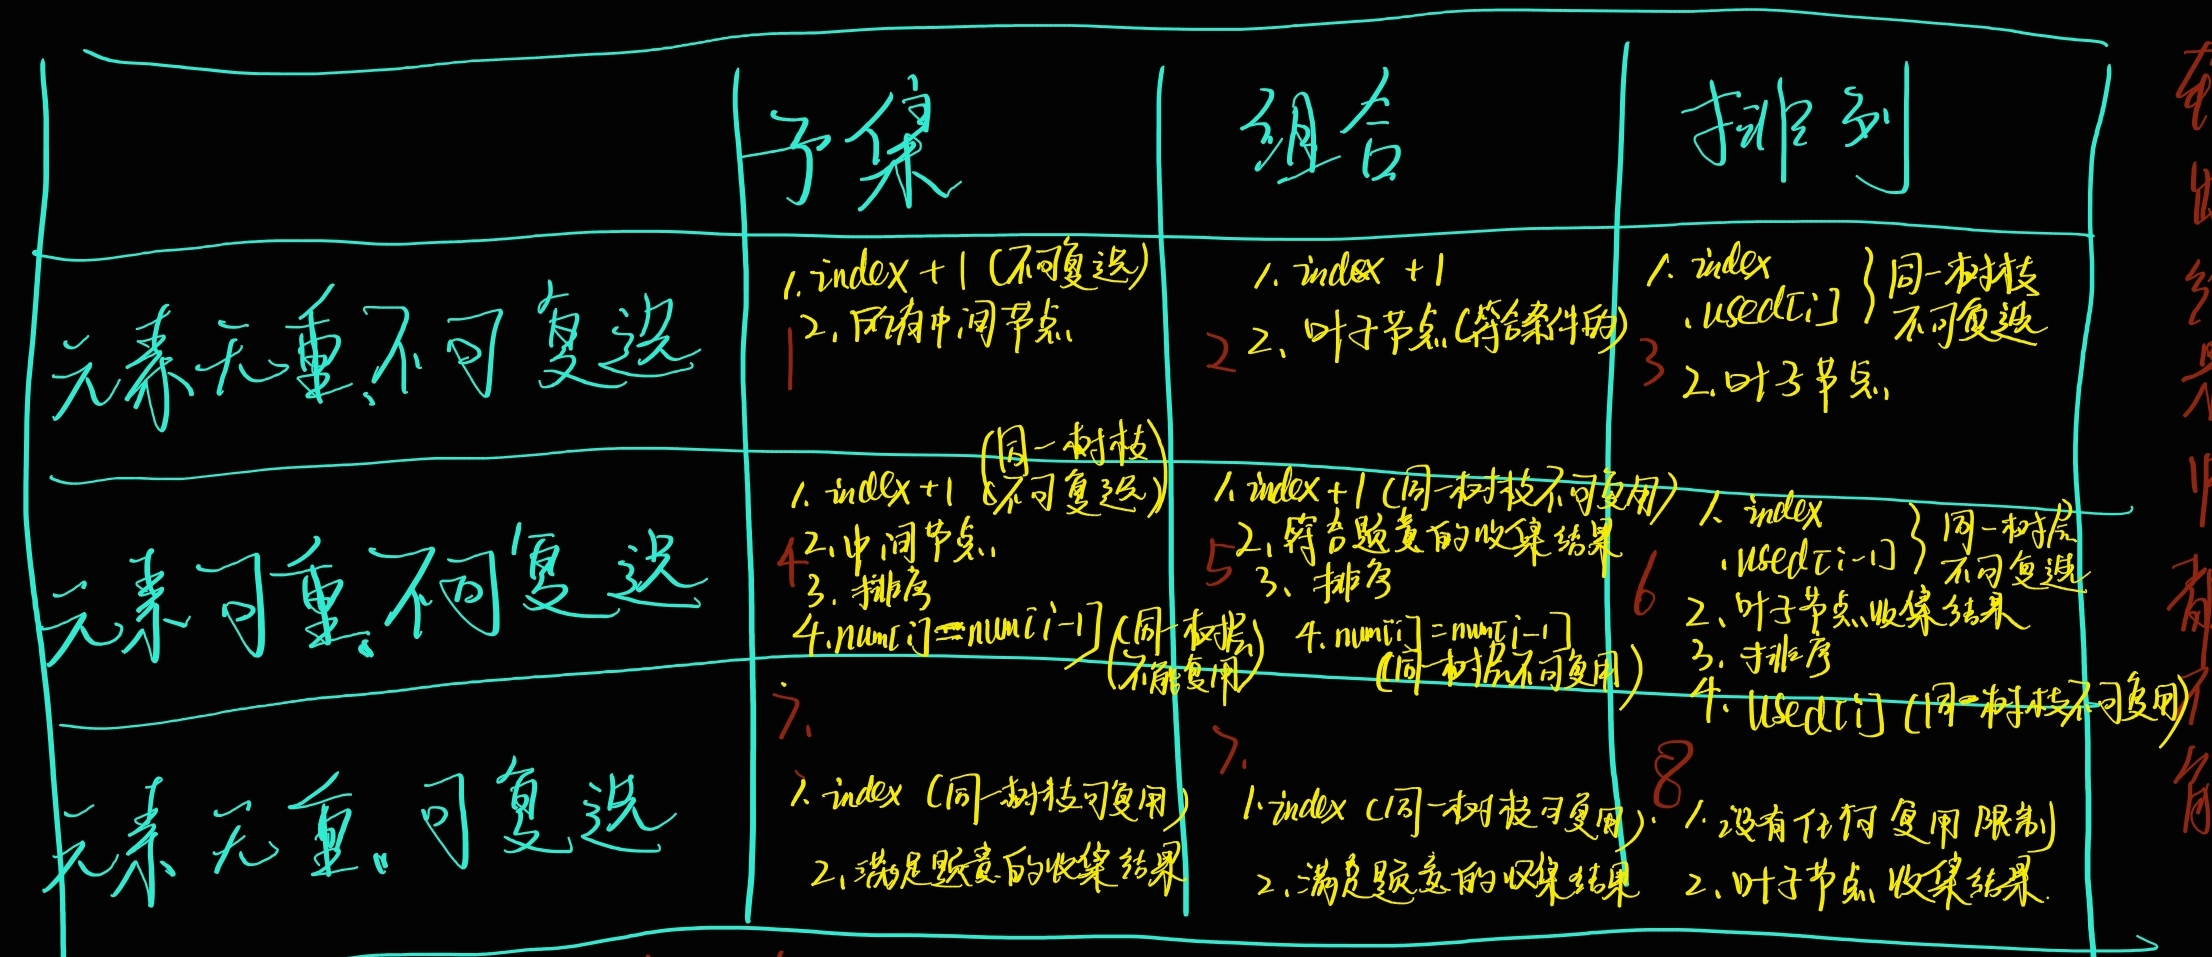 子集
组合
排列
元素无重.不可复选
1
1. index + 1 (不可复选)
2. 所有中间节点
2
1. index + 1
2. 叶子节点(符合条件的)
3
1. index
.used[i]
同一树枝
不可复选
2. 叶子节点.
元素可重.不可复选
4
1. index+1 (同一树枝
不可复选)
2. 中间节点.
3. 排序
4. num[i]=num[i-1] (同一树层
不能复用)
5
1. index+1 (同一树枝不可复用)
2. 符合题意的收集结果
3. 排序
4. num[i]=num[i-1]
(同一树层不可复用)
6
1. index
.used[i-1]
同一树层
不可复选
2. 叶子节点收集结果
3. 排序
4. used[i] (同一树枝不可复用)
元素无重.可复选
7.
1. index (同一树枝可复用)
2. 满足题意的收集结果
7.
1. index (同一树枝可复用).
2. 满足题意的收集结果
8
1. 没有任何复用限制
2. 叶子节点收集结果.